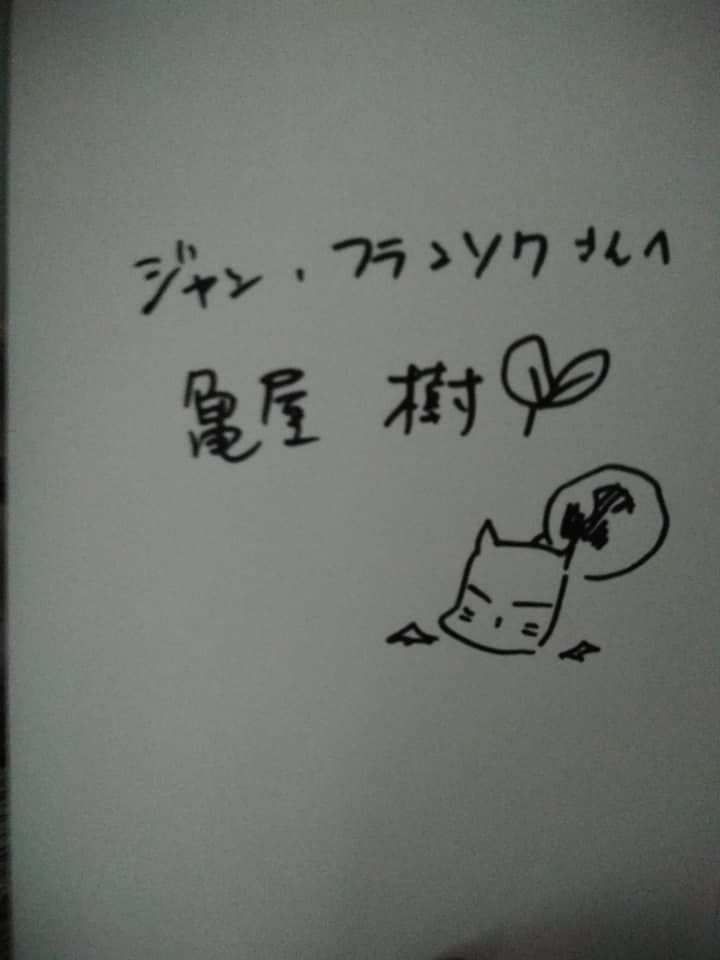 ジャン・フランソワさんへ
亀屋 樹